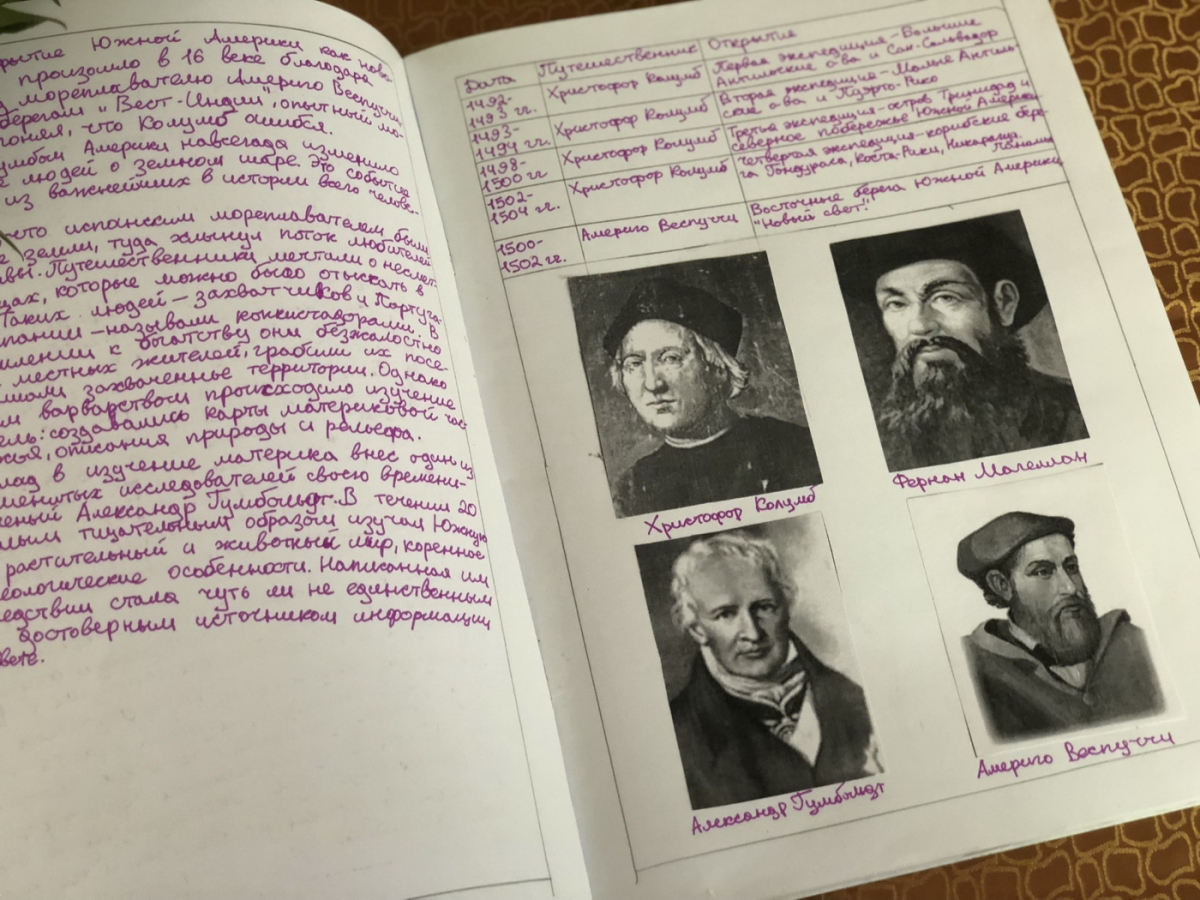 рытие Южной Америки как ново-
произошло в 16 веке благодаря
мореплавателю Америго Веспуччи
берегам "Вест-Индии", опытный мо-
понял, что Колумб ошибся.
умбом Америки навсегда изменило
людей о Земном шаре. Это событие
из важнейших в истории всего челове-
испанским мореплавателем были
земли, туда хлынул поток любителей
вы. Путешественники мечтали о несмет-
цах, которые можно было отыскать в
Таких людей – захватчиков и Португа-
пании – называли конкистадорами. В
млении к богатству они безжалостно
местных жителей, грабили их посе-
захваченные территории. Однако
м варварством происходило изучение
ель: создавались карты материковой час
жья, описания природы и рельефа.
лад в изучение материка внес один из
менитых исследователей своего времени-
ченый Александр Гумбольдт. В течении 20
мым тщательным образом изучал Южную
растительный и животный мир, коренное
еологические особенности. Написанная им
едствии стала чуть ли не единственным
достоверным источником информации
вете.
Дата Путешественник Открытие
1492-1493 гг. Христофор Колумб Первая экспедиция – Большие
Антильские о-ва и Сан-Сальвадор
1493-1494 гг. Христофор Колумб Вторая экспедиция – Малые Антиль-
ские о-ва и Пуэрто-Рико
1498-1500 гг Христофор Колумб Третья экспедиция – остров Тринидад и
северное побережье Южной Америки
1502-1504 гг. Христофор Колумб Четвертая экспедиция – карибские бере-
га Гондураса, Коста-Рики, Никарагуа, Панама
1500-1502 гг. Америго Веспуччи Восточные берега Южной Америки,
"Новый свет!"
Христофор Колумб
Фернан Магеллан
Александр Гумбольдт
Америго Веспуччи